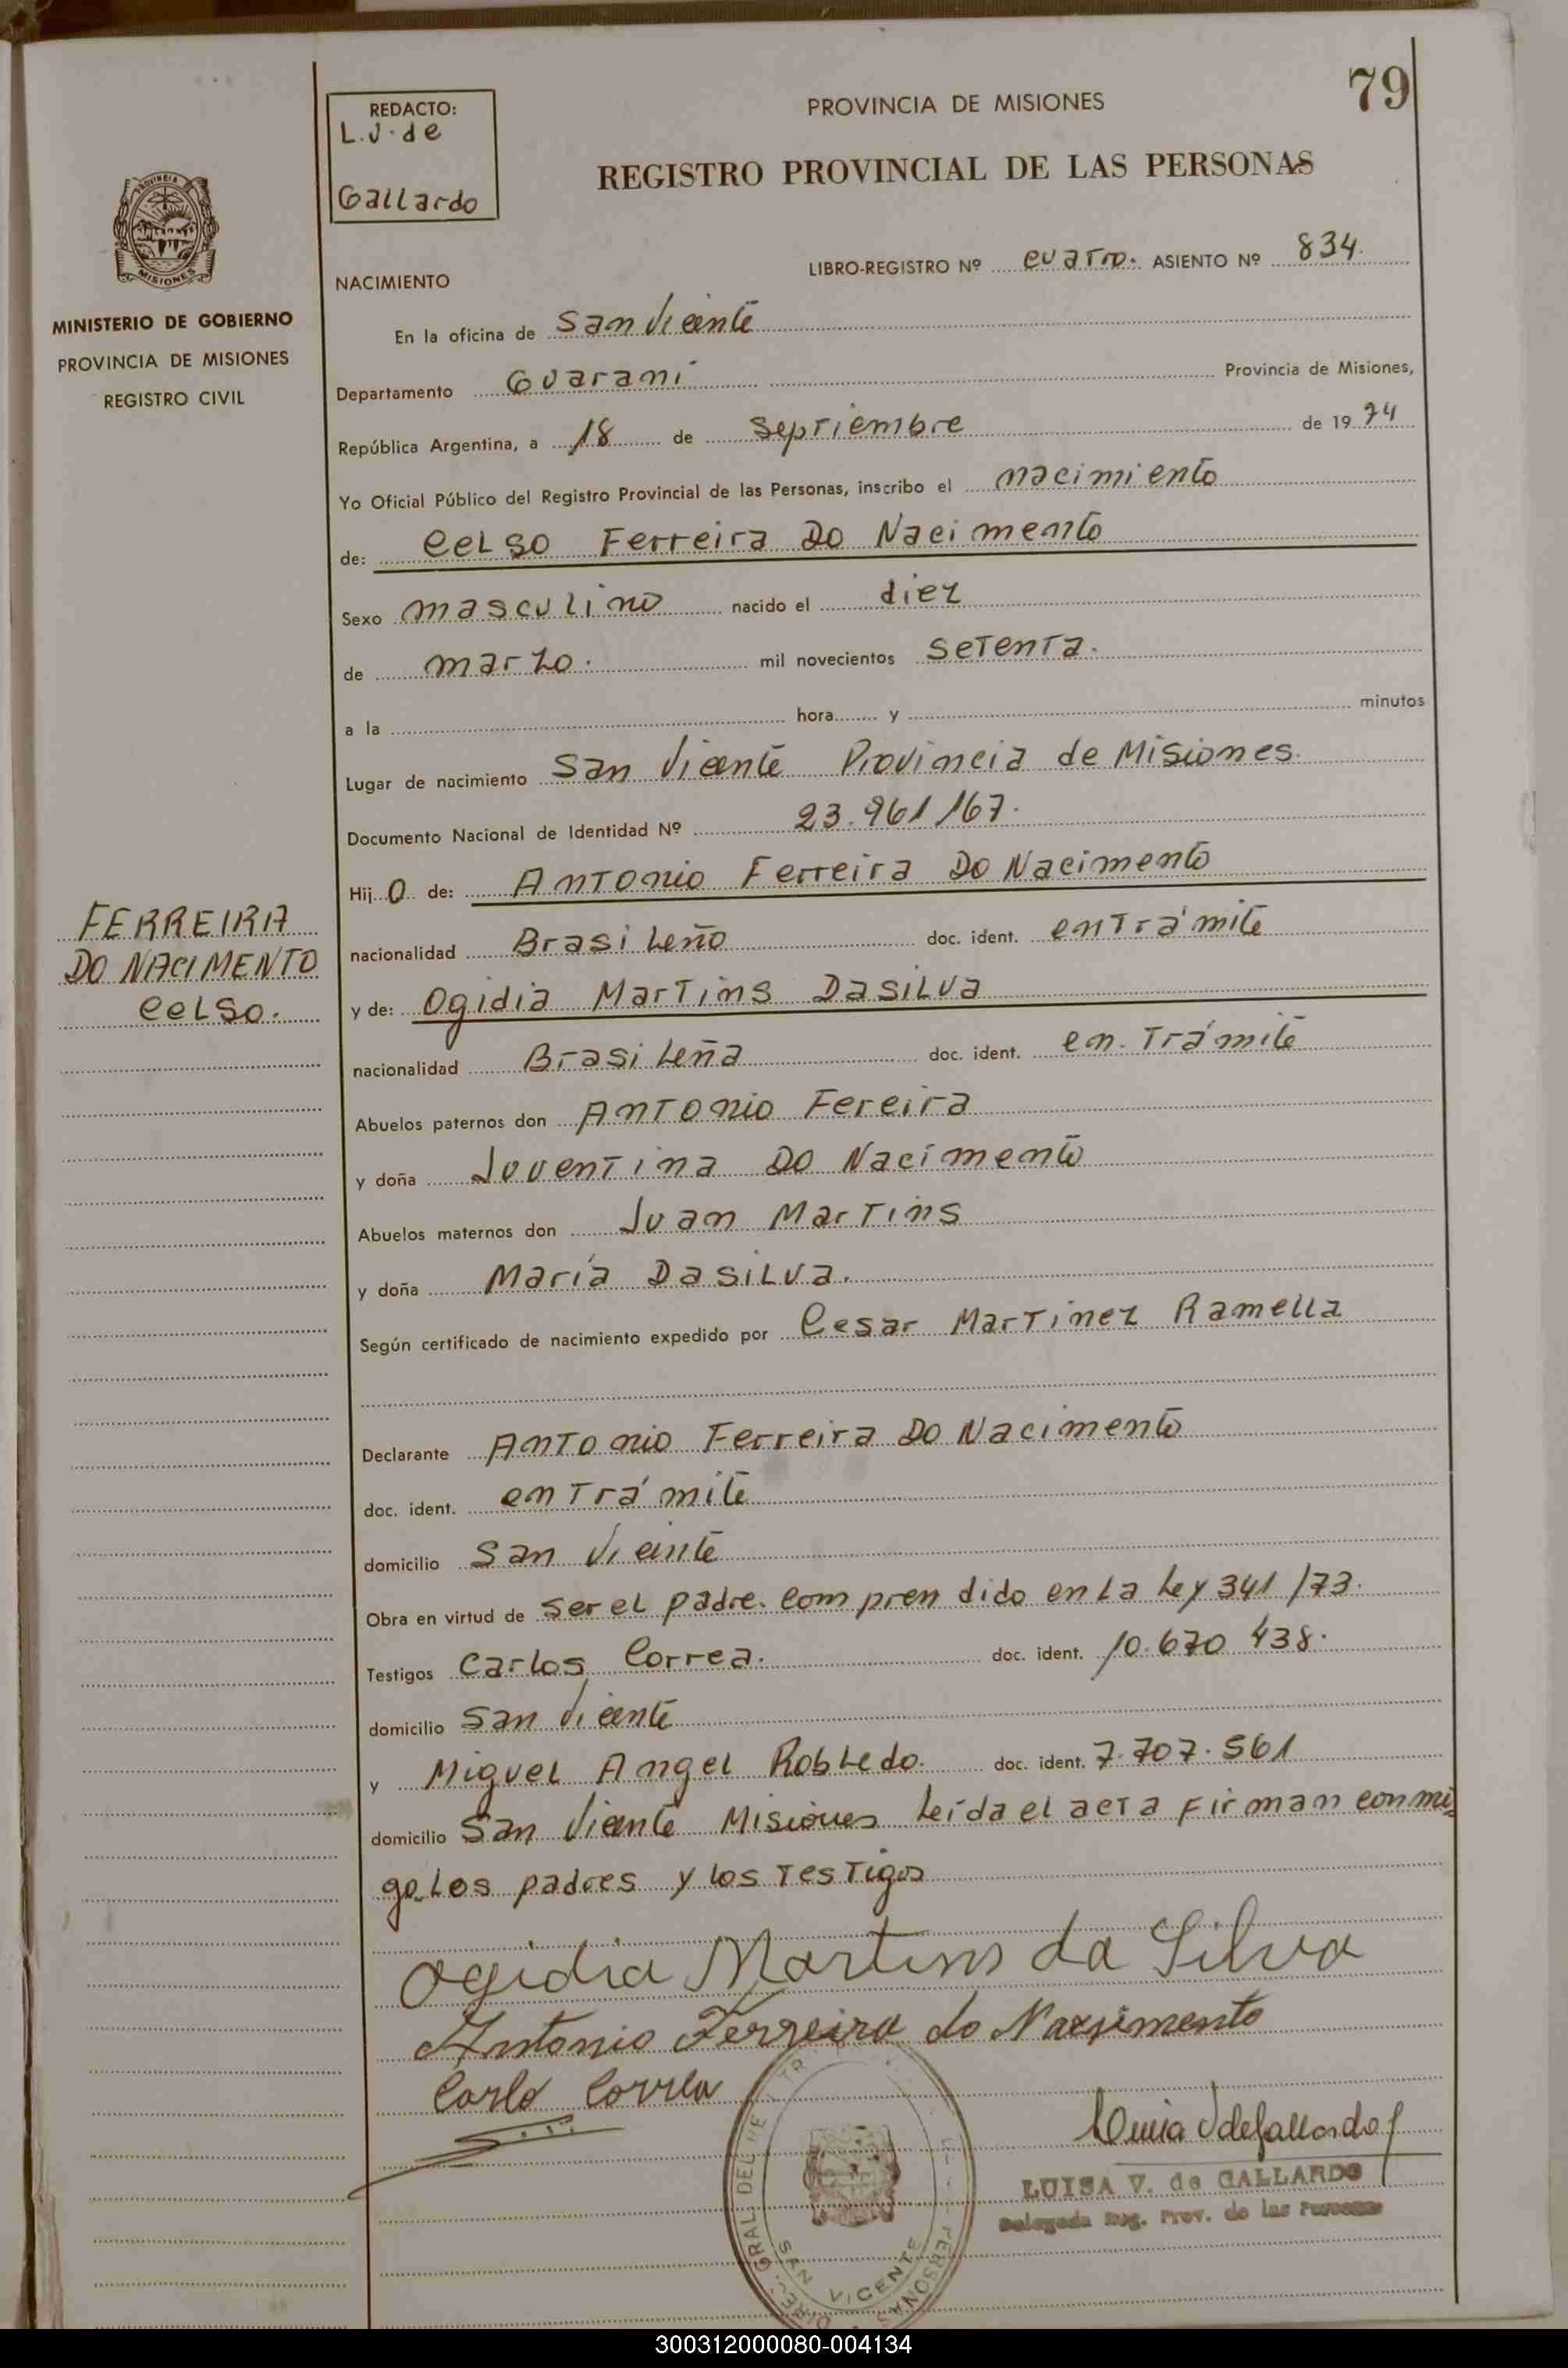 79
REDACTO:
L.V. de
Gallardo
PROVINCIA DE MISIONES
REGISTRO PROVINCIAL DE LAS PERSONAS
MISIONES
MINISTERIO DE GOBIERNO
PROVINCIA DE MISIONES
REGISTRO CIVIL
LIBRO-REGISTRO Nº cuatro. ASIENTO Nº 834.
NACIMIENTO
En la oficina de San Vicente
Departamento Guaraní Provincia de Misiones,
República Argentina, a 18 de septiembre de 1974
Yo Oficial Público del Registro Provincial de las Personas, inscribo el nacimiento
de: Celso Ferreira Do Nacimento
Sexo masculino nacido el diez
de marzo. mil novecientos setenta.
a la hora y minutos
Lugar de nacimiento San Vicente Provincia de Misiones.
Documento Nacional de Identidad Nº 23.961167.
Hijo de: Antonio Ferreira Do Nacimento
nacionalidad Brasileño doc. ident. en trámite
y de: Ogidia Martins Dasilva
nacionalidad Brasileña doc. ident. en trámite
Abuelos paternos don Antonio Fereira
y doña Juventina Do Nacimento
Abuelos maternos don Juan Martins
y doña María Dasilva.
Según certificado de nacimiento expedido por Cesar Martinez Ramella
Declarante Antonio Ferreira Do Nacimento
doc. ident. en trámite
domicilio San Vicente
Obra en virtud de ser el padre. Comprendido en la Ley 341/73.
Testigos Carlos Correa. doc. ident. 10.670 438.
domicilio San Vicente
y Miguel Angel Robledo. doc. ident. 7.707.561
domicilio San Vicente Misiones leída el acta firman conmi
go los padres y los testigos
FERREIRA
DO NACIMENTO
Celso.
Ogidia Martins da Silva
Antonio Ferreira do Nassimento
Carlo Correa
LUISA V. de GALLARDO
Delegada Reg. Prov. de las Personas
SAN VICENTE
300312000080-004134